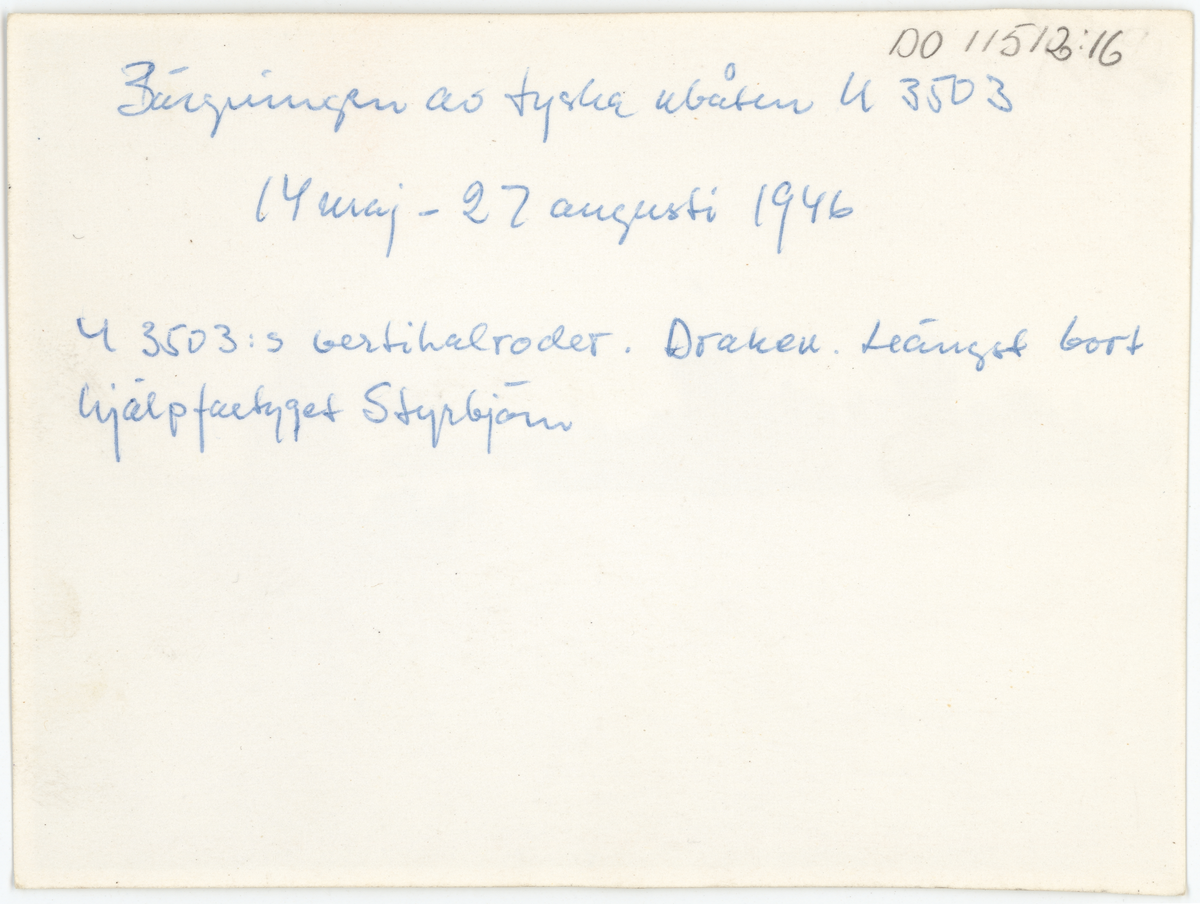 DO 11512:16
Bärgningen av tyska ubåten U 3503
14 maj - 27 augusti 1946
U 3503:s vertikalroder. Draken. Längst bort
hjälpfartyget Styrbjörn